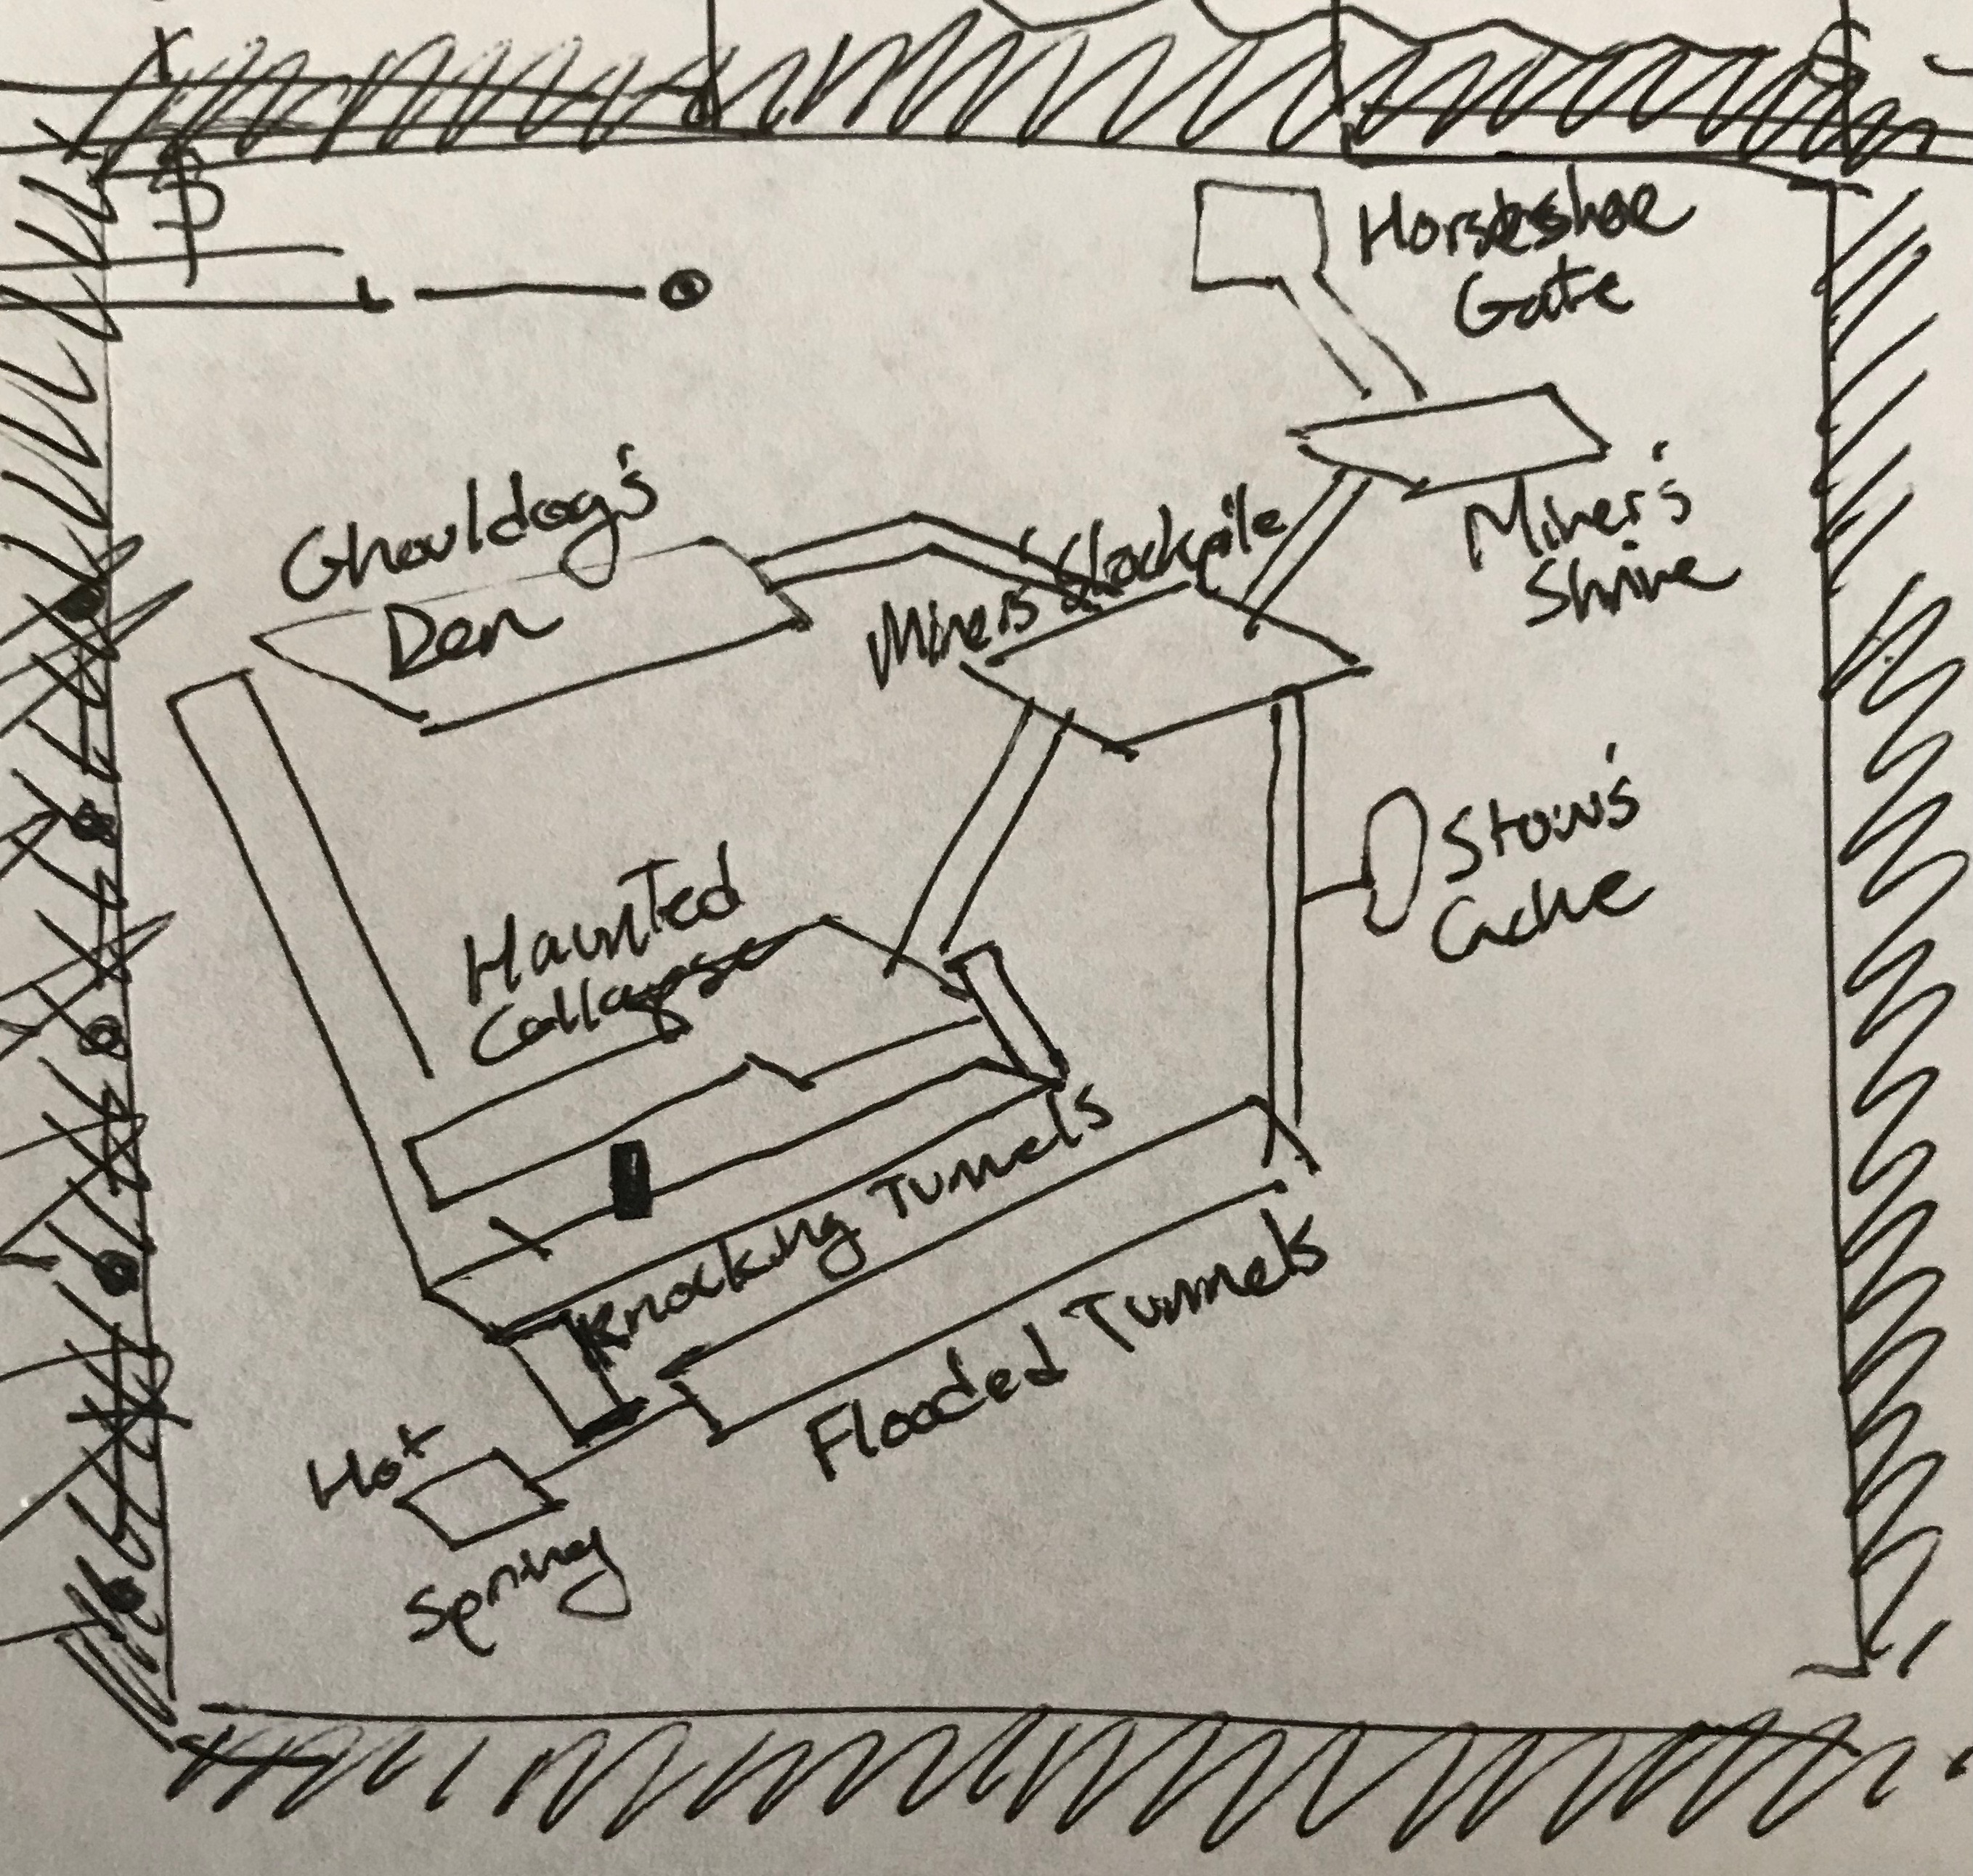 Horseshoe
Gate
Ghouldog's
Den
Miner's Stockpile
Miner's
Shrine
Stow's
Cache
Haunted
Collapse
Knocking Tunnels
Flooded Tunnels
Hot
Spring